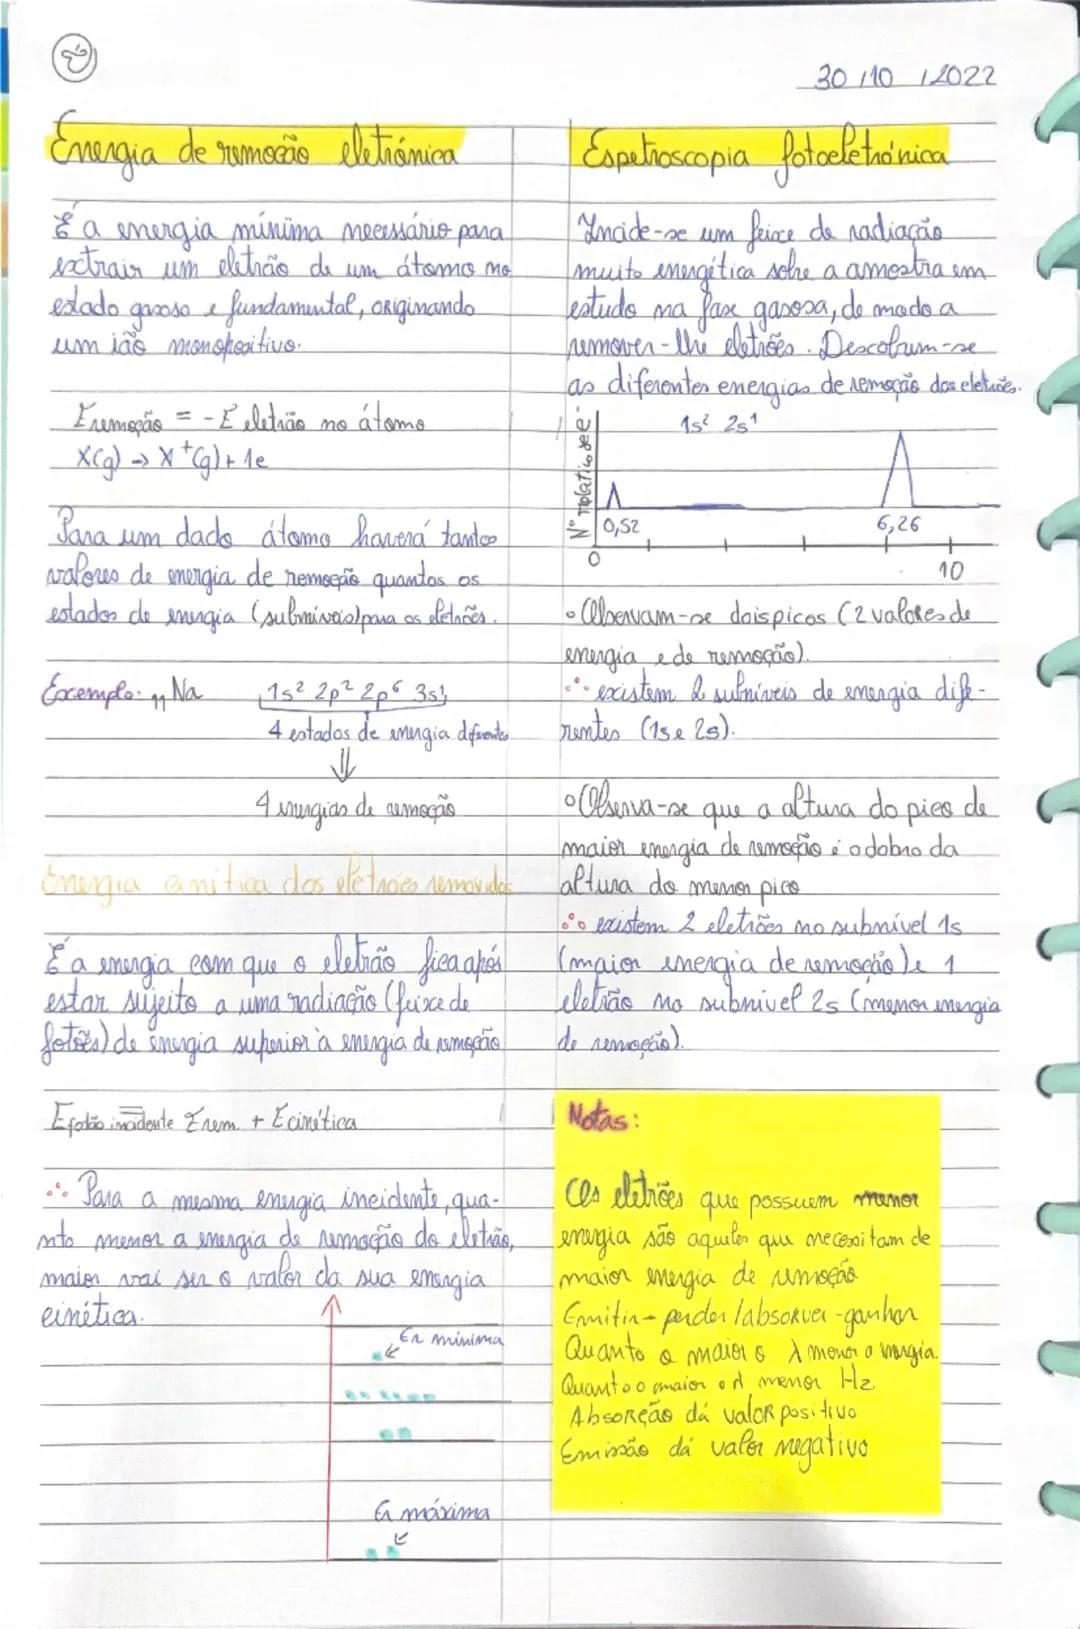 30/10/2022
Energia de remoção eletrónica
É a energia mínima necessário para
extrair um eletrão de um átomo no
estado gasoso e fundamental, originando
um ião monopositivo.
Eremoção = -E eletrão no átomo
X(g) → X⁺(g) + 1e
Para um dado átomo haverá tantos
valores de energia de remoção quantos os
estados de energia (subníveis) para os eletrões.
Exemplo: ₁₁Na 1s² 2p² 2p⁶ 3s¹
4 estados de energia diferentes
⇓
4 energias de remoção
Energia cinítica dos eletrões removidos
É a energia com que o eletrão fica após
estar sujeito a uma radiação (feixe de
fotões) de energia superior à energia de remoção
Efotão incidente = Erem. + Ecinética
∴ Para a mesma energia incidente, qua-
nto menor a energia de remoção do eletrão,
maior vai ser o valor da sua energia
cinética.
Er mínima
Er máxima
Espetroscopia fotoeletrónica
Incide-se um feixe de radiação
muito energética sobre a amostra em
estudo na fase gasosa, de modo a
remover-lhe eletrões. Descobrem-se
as diferentes energias de remoção dos eletrões.
Nº relativo de é
1s² 2s¹
0,52 6,26
0 10
• Observam-se dois picos (2 valores de
energia e de remoção).
∴ existem 2 subníveis de energia dife-
rentes (1s e 2s).
• Observa-se que a altura do pico de
maior energia de remoção é o dobro da
altura do menor pico
∴ existem 2 eletrões no subnível 1s
(maior energia de remoção) e 1
eletrão no subnível 2s (menor energia
de remoção).
Notas:
Os eletrões que possuem menor
energia são aqueles que necessitam de
maior energia de remoção
Emitir - perder / absorver - ganhar
Quanto a maior o λ menor a energia.
Quanto o maior o λ menor Hz
Absorção dá valor positivo
Emissão dá valor negativo